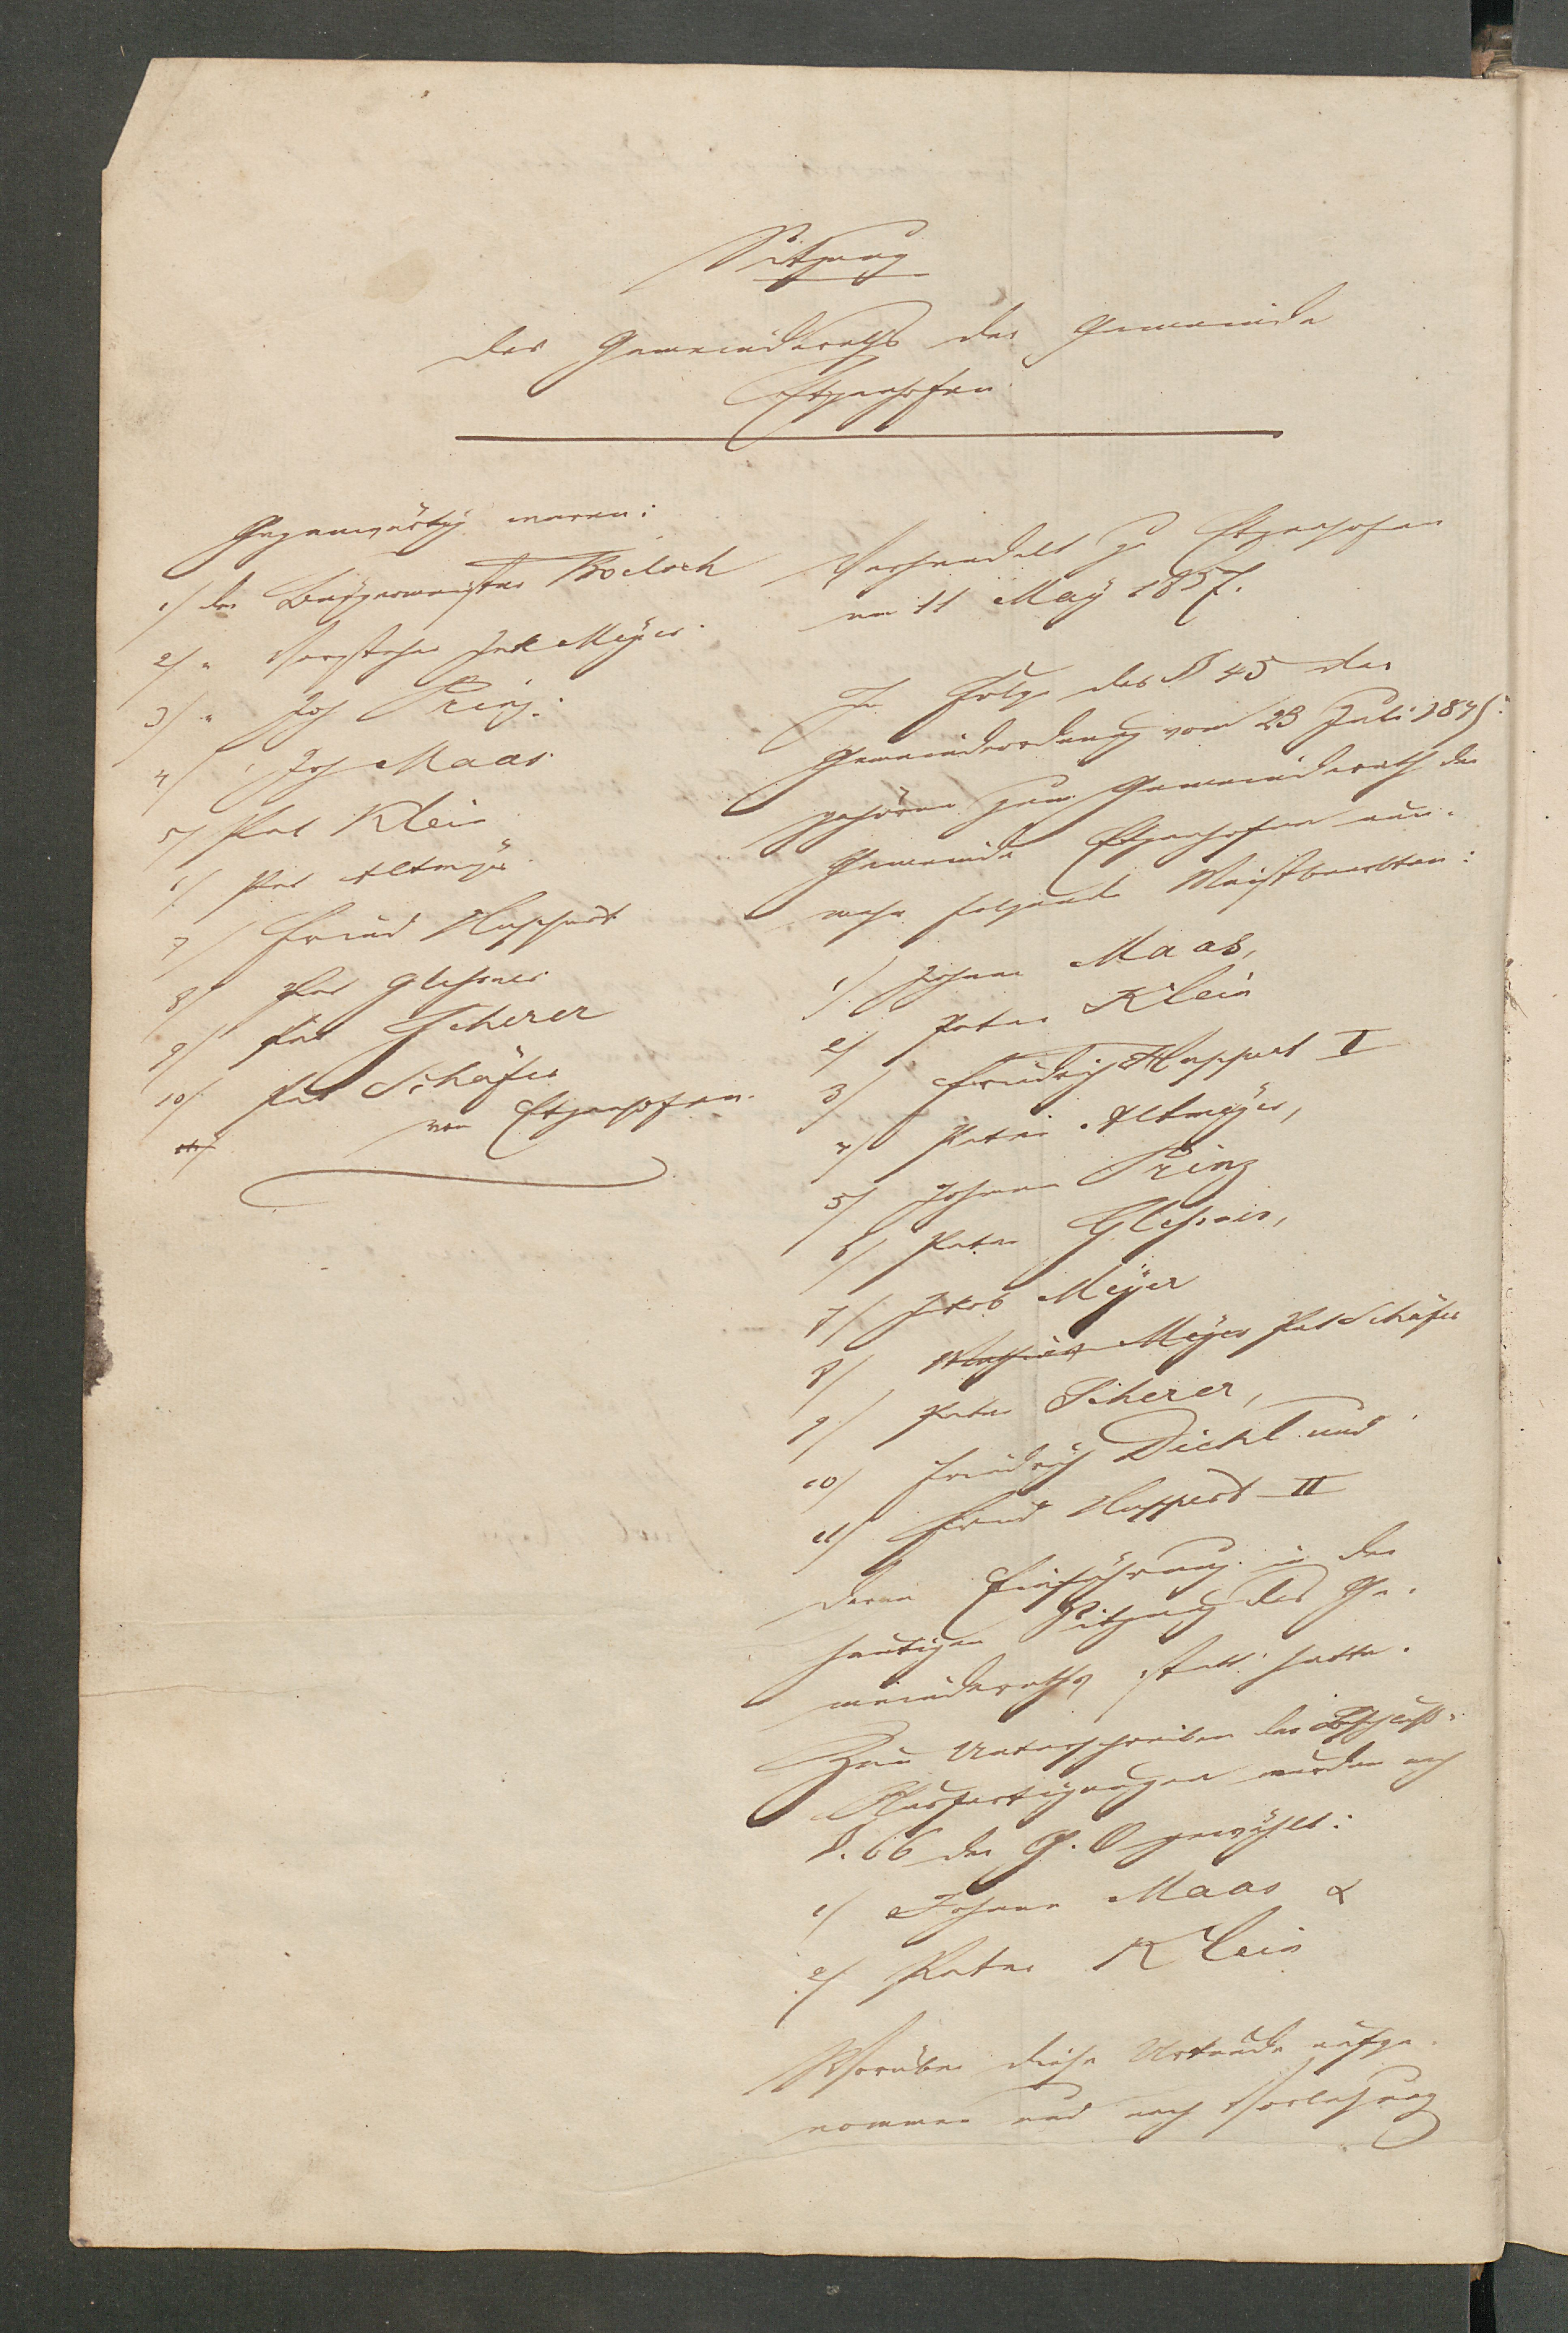 Sitzung
des Gemeinderaths der Gemeinde
Etzenhofen
Gegenwärtig waren:
1) der Bürgermeister
2) " Vorsteher Jak Meyer.
3) " Joh Prinz.
4) " Joh Maas
5) Pet Klein
6) Pet Altmeyer
7) Fried Huppert
8) Pet Glessner
9) Pet Scherer
10) Pet Schäfer
11)
von Etzenhofen.
Verhandelt zu Etzenhofen
am 11 May 1857.
In Folge des § 45 der
Gemeindeordnung vom 23 Juli 1845
gehören zum Gemeinderath der
Gemeinde Etzenhofen nun-
mehr folgende Meistbeerbten:
1) Johann Maas,
2) Peter Klein
3) Friedrich Huppert I
4) Peter Altmeyer,
5) Johann Prinz
6) Peter Glessner,
7) Jakob Meyer
8) Meyer Pet Schäfer
9) Peter Scherer,
10) Friedrich Diehl und
11) Fried Huppert II
deren Einführung in der
heutigen Sitzung des Ge-
meinderaths statt hatte.
Zum Unterschreiben der Beschluß-
Ausfertigungen wurden nach
§. 66 der G. O gewählt:
1) Johann Maas &
2) Peter Klein
Worüber diese Urkunde aufge-
nommen und nach Vorlesung